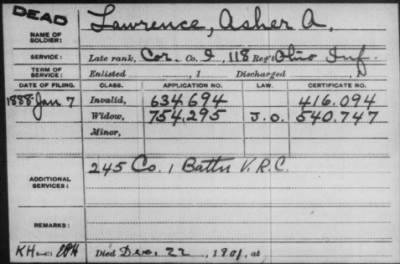 DEAD
NAME OF SOLDIER: Lawrence, Asher A.
SERVICE: Late rank, Cor. Co. I, 118 Reg't Ohio Inf.
TERM OF SERVICE: Enlisted , 1 Discharged , 1
DATE OF FILING. CLASS. APPLICATION NO. LAW. CERTIFICATE NO.
1888 Jan 7 Invalid, 634,694 416.094
Widow, 754,295 J.O. 540.747
Minor,
ADDITIONAL SERVICES: 245 Co. 1 Battn V.R.C.
REMARKS:
Died Dec. 22, 1901, at